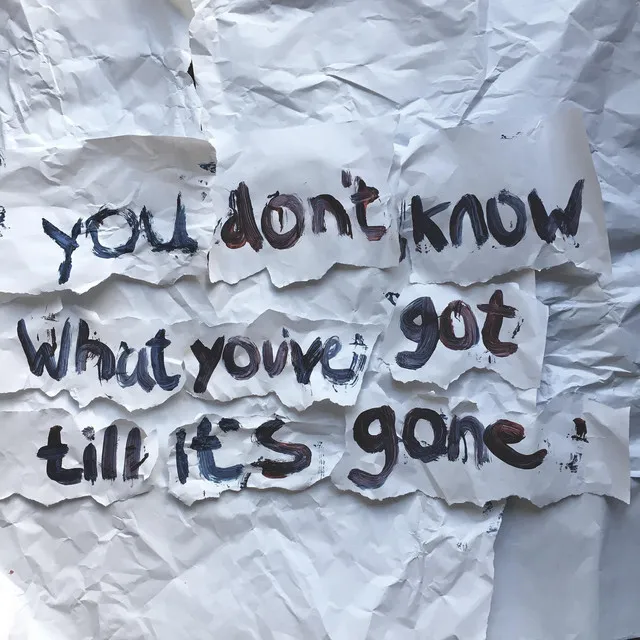 you don't know
What you've got
till it's gone.